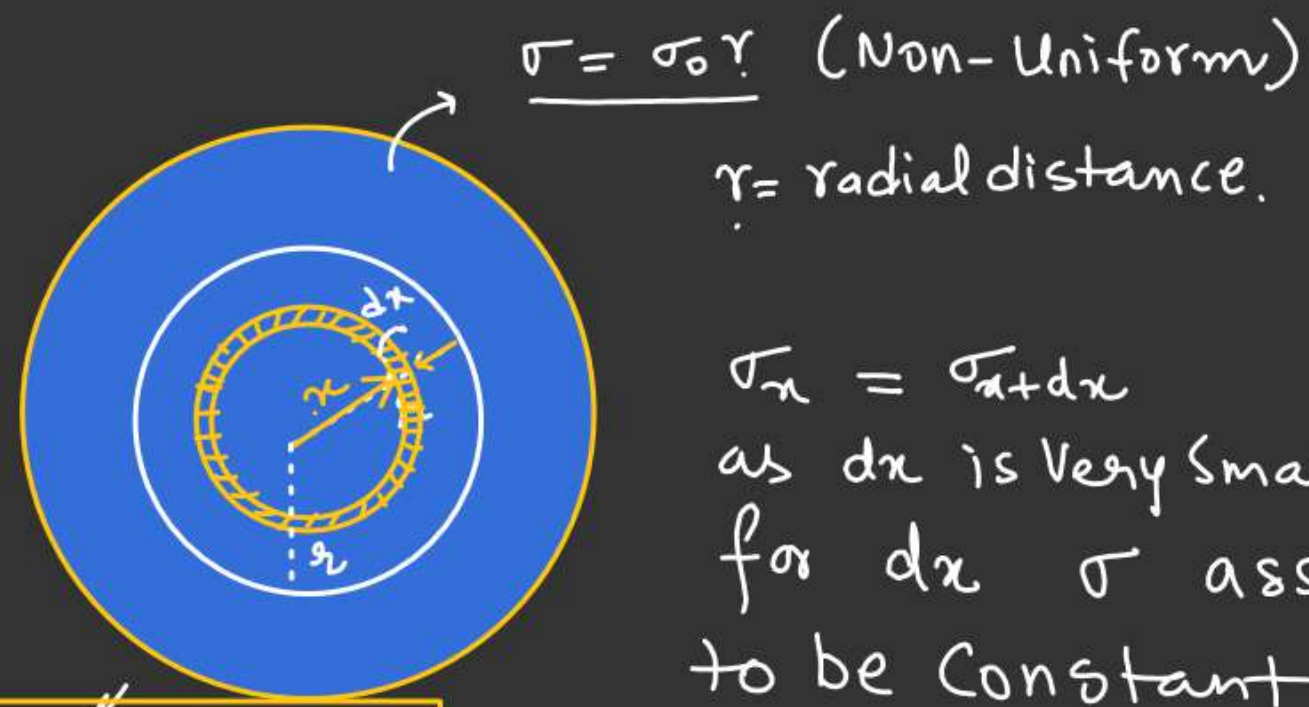 σ = σ₀r (Non-Uniform)
r = radial distance.
dx
x
r
σx = σx+dx
as dx is Very Sma
for dx σ ass
to be Constant